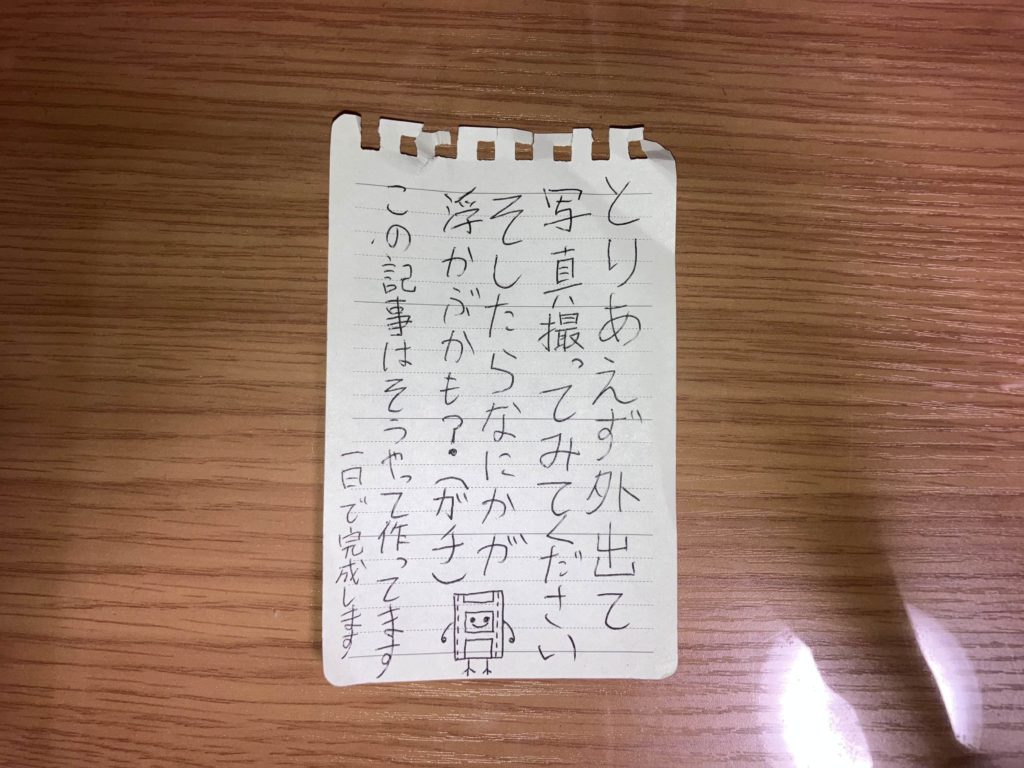 とりあえず外出て
写真撮ってみてください
そしたらなにかが
浮かぶかも?(ガチ)
この記事はそうやって作ってます
一日で完成します